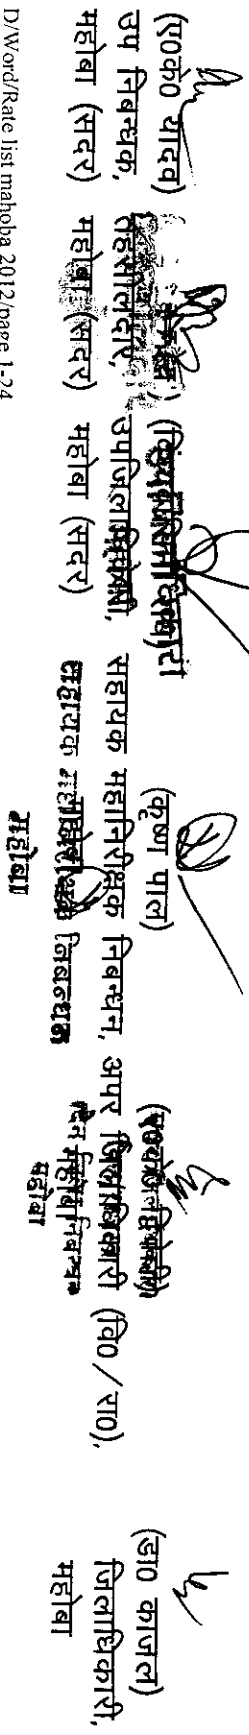 (ए0के0 यादव)
उप निबन्धक,
महोबा (सदर)
तहसीलदार,
महोबा (सदर)
उपजिलाधिकारी,
महोबा (सदर)
(कृष्ण पाल)
सहायक महानिरीक्षक निबन्धन,
सहायक महानिरीक्षक निबन्धन
महोबा
अपर जिलाधिकारी (वि0/रा0),
महोबा
(डा0 काजल)
जिलाधिकारी,
महोबा
D/Word/Rate list mahoba 2012/page 1-24